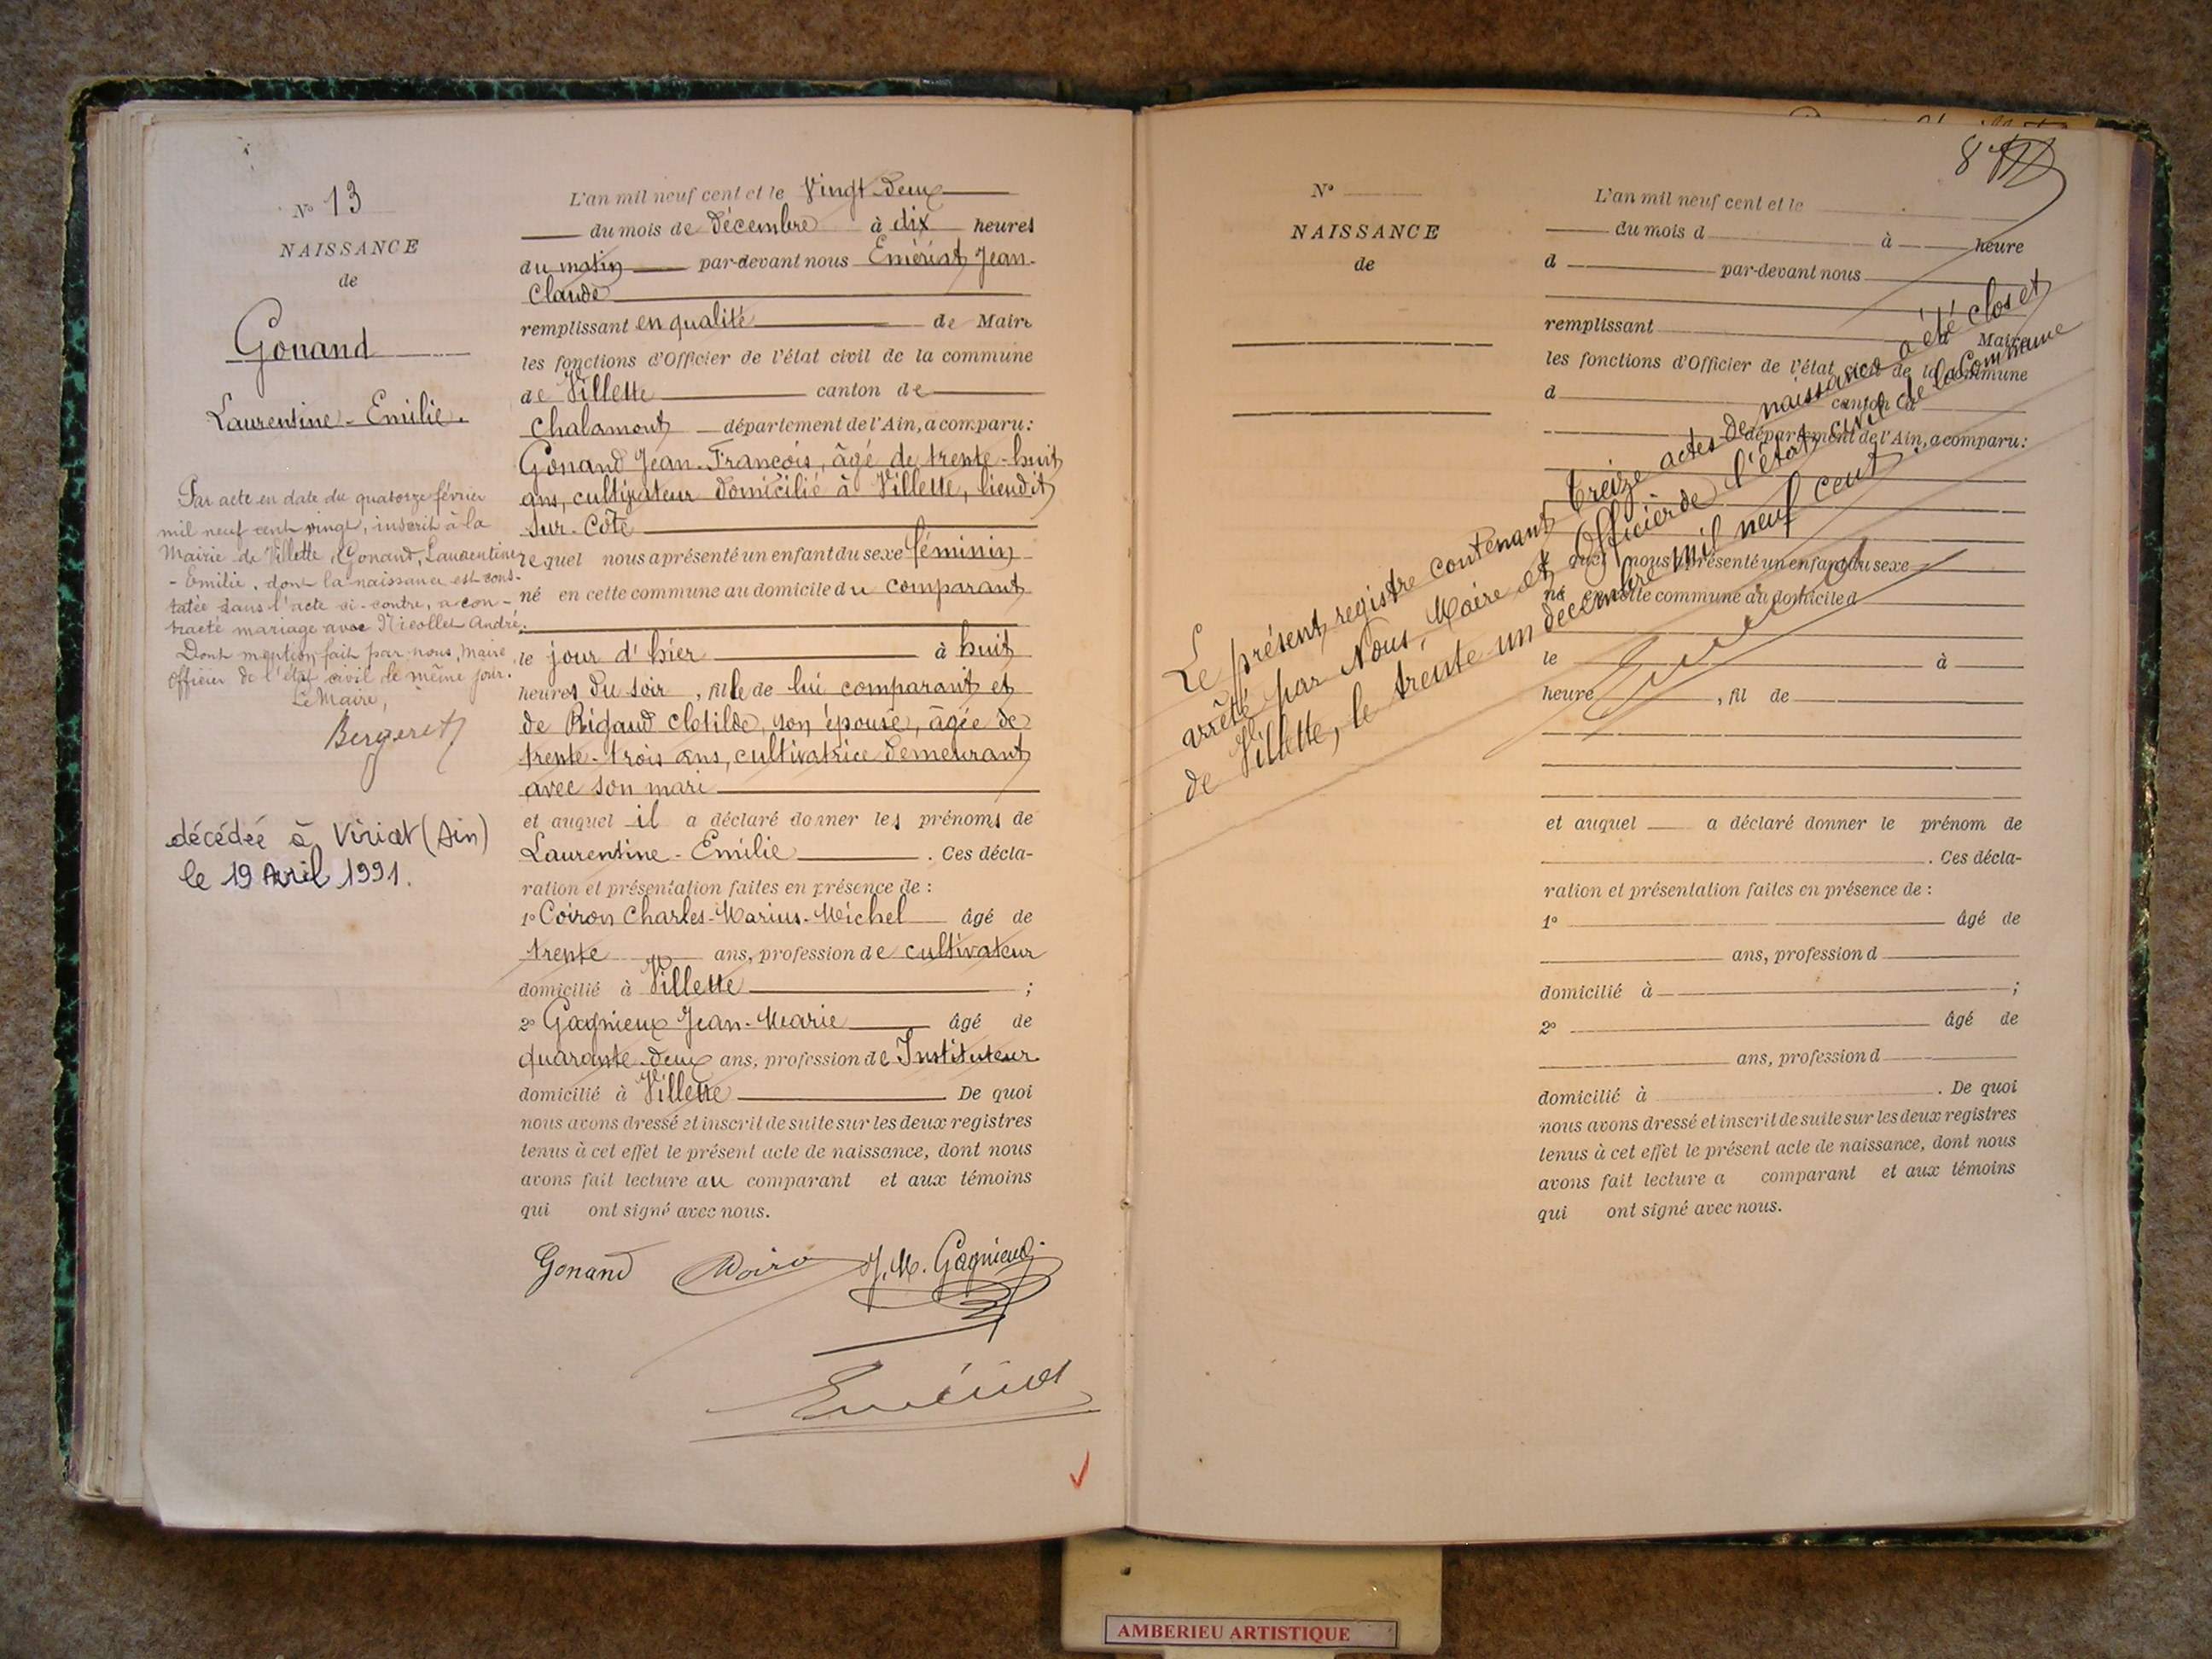 N° 13
NAISSANCE
de
Gonand
Laurentine-Emilie.
Par acte en date du quatorze février
mil neuf cent vingt, inscrit à la
Mairie de Villette, Gonand, Laurentine
-Emilie, dont la naissance est cons-
tatée dans l'acte ci-contre, a con-
tracté mariage avec Nicollet André.
Dont mention fait par nous, Maire,
Officier de l'état civil le même jour.
Le Maire,
Bergeret
décédée à Viriat (Ain)
le 19 Avril 1991.
L'an mil neuf cent et le Vingt-deux
du mois de Décembre à dix heures
du matin par-devant nous Emériat Jean-
Claude
remplissant en qualité de Maire
les fonctions d'Officier de l'état civil de la commune
de Villette canton de
Chalamont département de l'Ain, a comparu:
Gonand Jean-François, âgé de trente-huit
ans, cultivateur domicilié à Villette, lieudit
Sur-Côte
lequel nous a présenté un enfant du sexe féminin
né en cette commune au domicile du comparant
le jour d'hier à huit
heures du soir, fille de lui comparant et
de Rigaud Clotilde, son épouse, âgée de
trente-trois ans, cultivatrice demeurant
avec son mari
et auquel il a déclaré donner les prénoms de
Laurentine-Emilie. Ces décla-
ration et présentation faites en présence de :
1° Coiron Charles-Marius-Michel âgé de
trente ans, profession de cultivateur
domicilié à Villette ;
2° Gagnieux Jean-Marie âgé de
quarante-deux ans, profession de Instituteur
domicilié à Villette De quoi
nous avons dressé et inscrit de suite sur les deux registres
tenus à cet effet le présent acte de naissance, dont nous
avons fait lecture au comparant et aux témoins
qui ont signé avec nous.
Gonand J. M. Gagnieux
Emériat
8
N°
NAISSANCE
de
L'an mil neuf cent et le
du mois d à heure
d par-devant nous
remplissant Maire
les fonctions d'Officier de l'état civil de la commune
d canton d
département de l'Ain, a comparu:
quel nous a présenté un enfant du sexe
né en cette commune au domicile d
le à
heure , fil de
et auquel a déclaré donner le prénom de
. Ces décla-
ration et présentation faites en présence de :
1° âgé de
ans, profession d
domicilié à ;
2° âgé de
ans, profession d
domicilié à . De quoi
nous avons dressé et inscrit de suite sur les deux registres
tenus à cet effet le présent acte de naissance, dont nous
avons fait lecture a comparant et aux témoins
qui ont signé avec nous.
Le présent registre contenant treize actes de naissance a été clos et
arrêté par Nous, Maire et Officier de l'état civil de la Commune
de Villette, le trente un décembre mil neuf cent.
AMBERIEU ARTISTIQUE